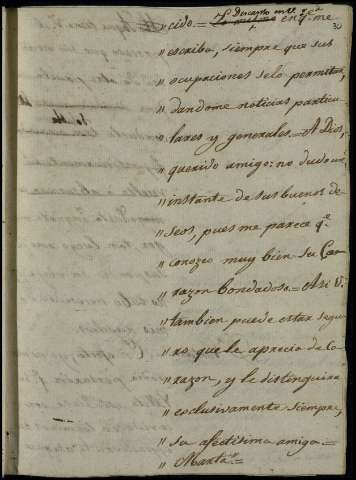 Descanso en q.e
"cido.= en q.e me
"escriba, siempre que sus
"ocupaciones selo permitan,
"dandome noticias particu
"lares y generales.= A Dios,
"querido amigo: no dudo un
"instante de sus buenos de
"seos, pues me parece q.e
"conozco muy bien su Co
"razon Bondadoso.= Asi V.
"tambien puede estar segu
"ro que le aprecia de Co
"razon, y le distinguirá
"exclusivamente siempre,
"su afectisima amiga.=
"Marta."=